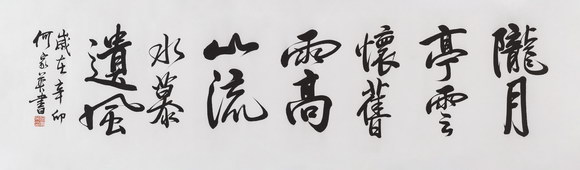 隴月
亭雲
懷舊
雨高
山流
水慕
遺風
歲在辛卯
何家英書